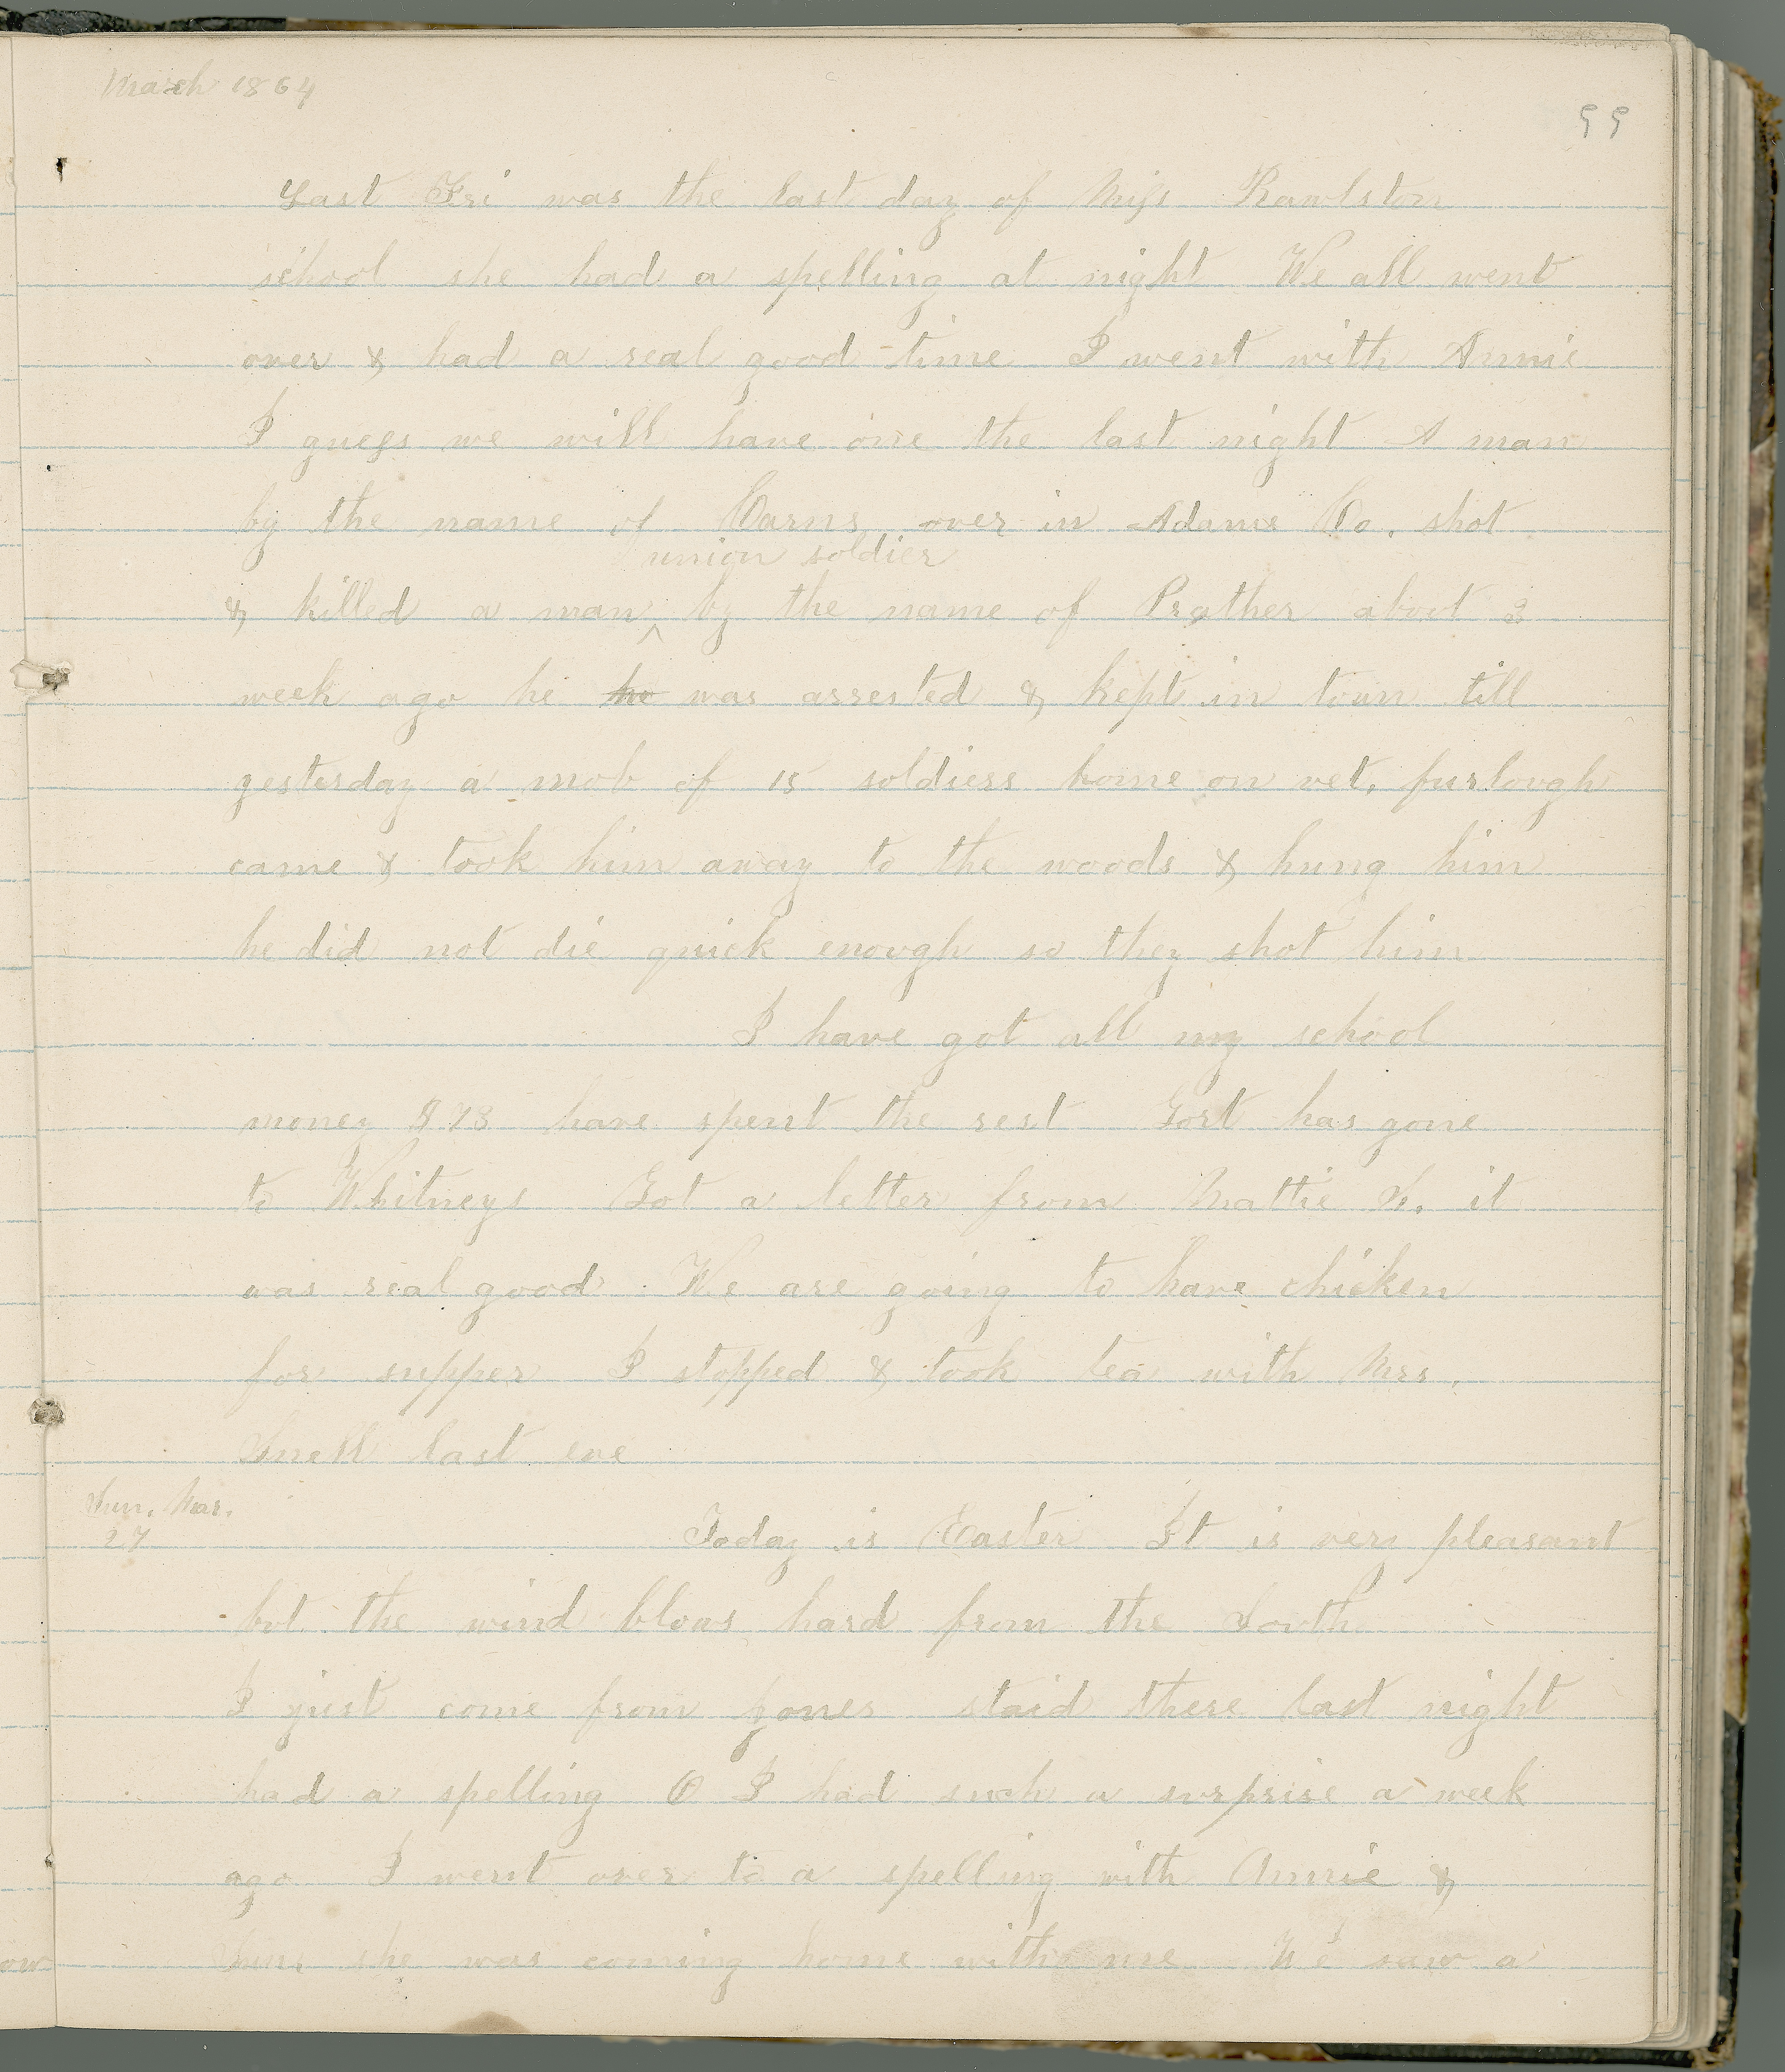 March 1864
99
Last Fri was the last day of Miss Rawlston
school she had a spelling at night We all went
over & had a real good time I went with Annie
I guess we will have one the last night A man
by the name of Carns over in Adams Co. shot
union soldier
& killed a man ^ by the name of Prather about 3
week ago he ho was arrested & kept in town till
yesterday a mob of 15 soldiers home on vet. furlough
came & took him away to the woods & hung him
he did not die quick enough so they shot him
I have got all my school
money $73 have spent the rest Gort has gone
to Whitneys Got a letter from Mattie it
was real good We are going to have chicken
for supper I stopped & took tea with Mrs.
Snell last eve
Sun. Mar.
27
Today is Easter It is very pleasant
but the wind blows hard from the South
I just come from Jones staid there last night
had a spelling O I had such a surprise a week
ago I went over to a spelling with Annie &
Sun. she was coming home with me We saw a
ow